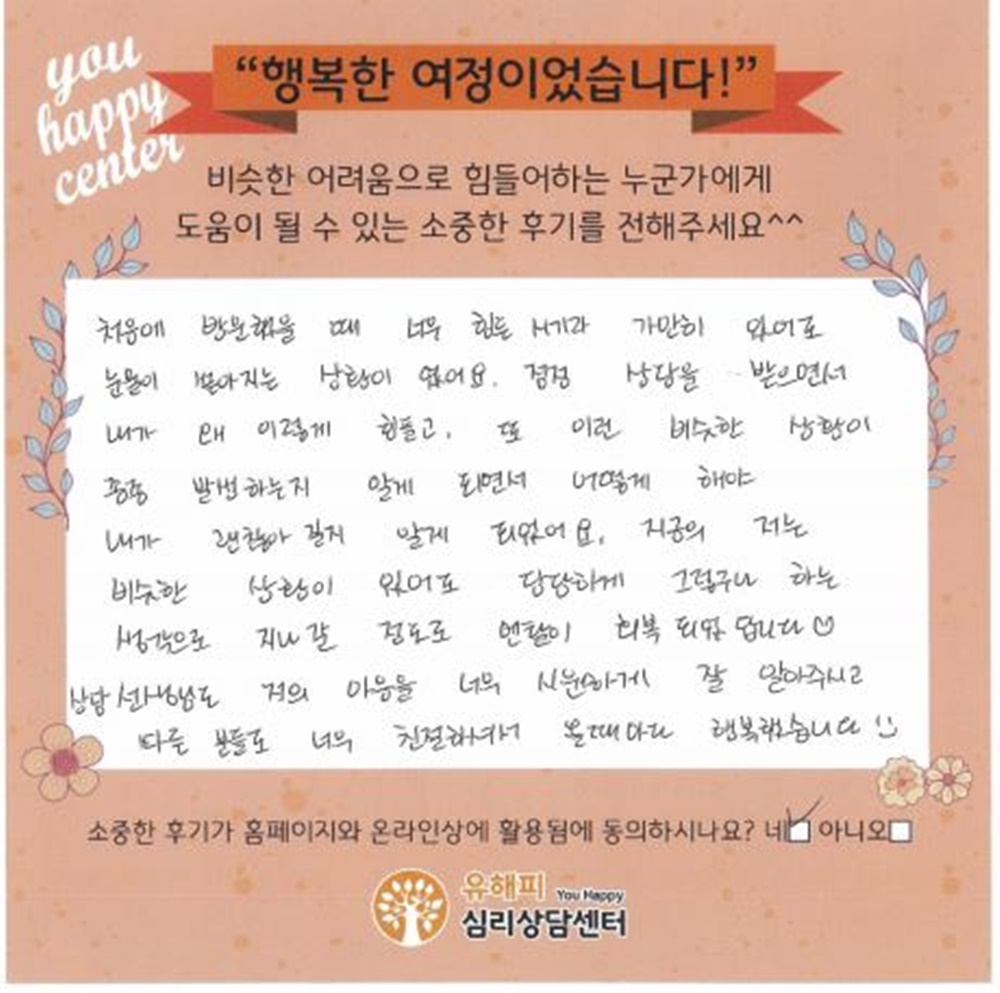 you
happy
center
“행복한 여정이었습니다!”
비슷한 어려움으로 힘들어하는 누군가에게
도움이 될 수 있는 소중한 후기를 전해주세요^^
처음에 방문했을 때 너무 힘든 시기라 가만히 있어도
눈물이 쏟아지는 상황이 었어요. 점점 상담을 받으면서
내가 왜 이렇게 힘들고, 또 이런 비슷한 상황이
종종 발생하는지 알게 되면서 어떻게 해야
내가 괜찮아 질지 알게 되었어요. 지금의 저는
비슷한 상황이 있어도 당당하게 그렇구나 하는
생각으로 지나갈 정도로 멘탈이 회복 되었 답니다☺
상담 선생님도 저의 마음을 너무 시원하게 잘 알아주시고
다른 분들도 너무 친절하셔서 올때마다 행복했습니다 :)
소중한 후기가 홈페이지와 온라인상에 활용됨에 동의하시나요? 네☑ 아니오☐
유해피 You Happy
심리상담센터